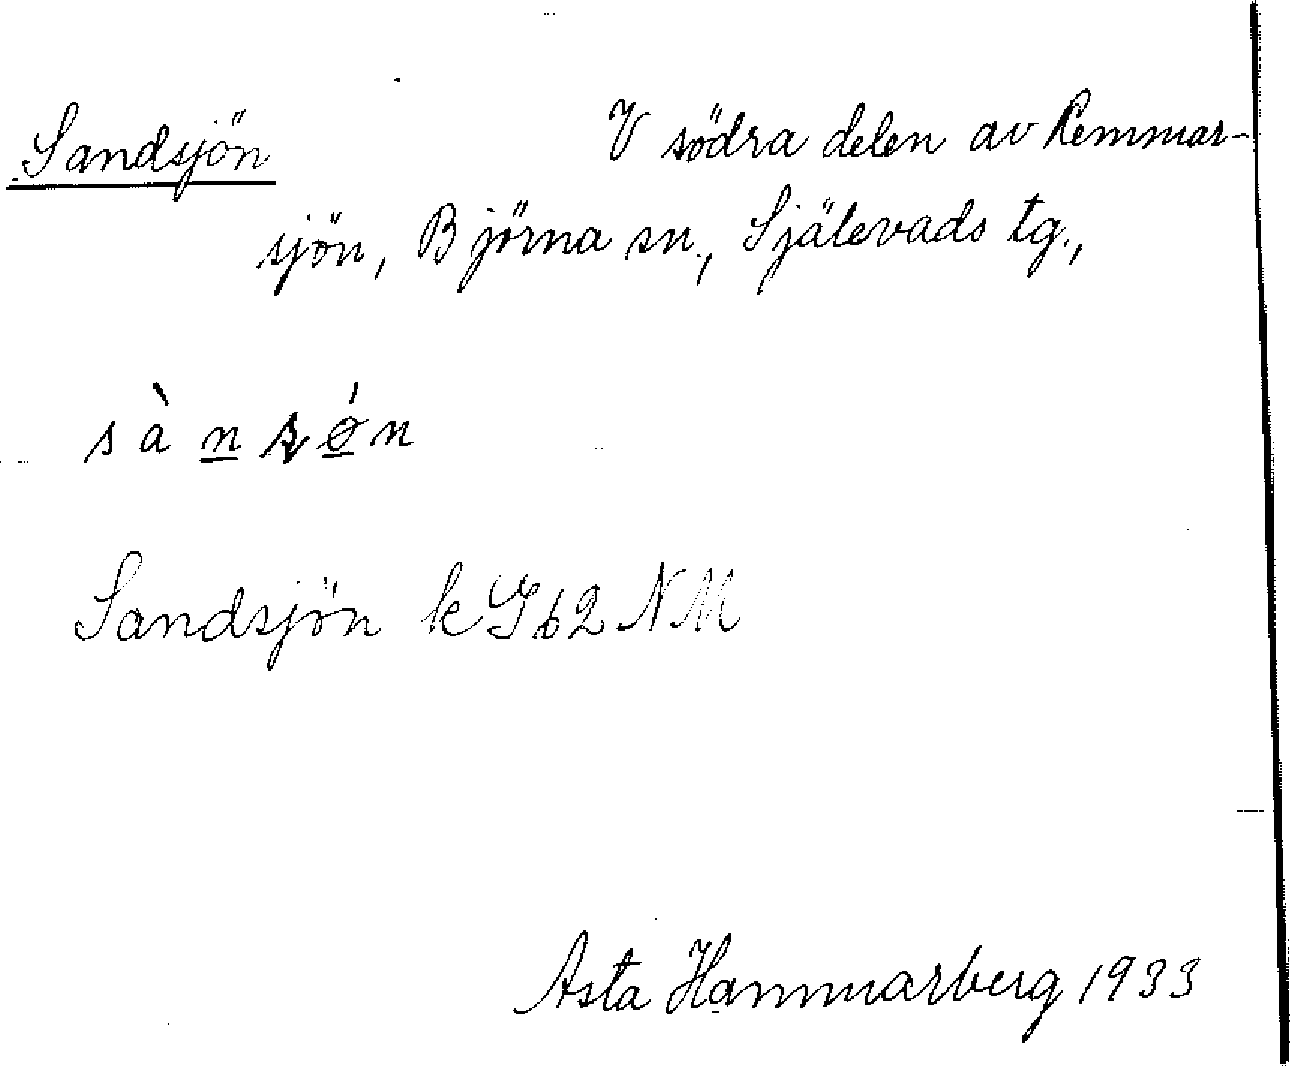 Sandsjön V södra delen av Remmar-
sjön, Björna sn., Själevads tg.,
Sandsjön k Gb2 NM
Asta Hammarberg 1933